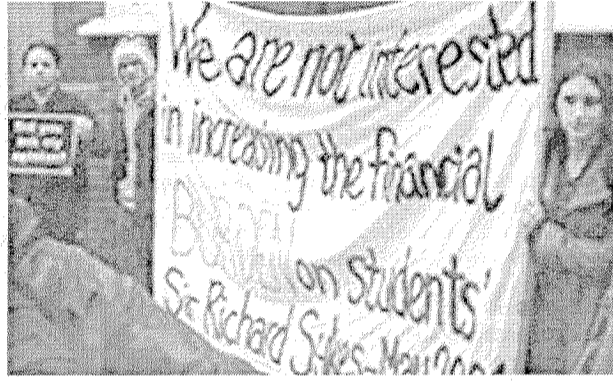 We are not interested
in increasing the financial
BURDEN on students'
Sir Richard Sykes - May